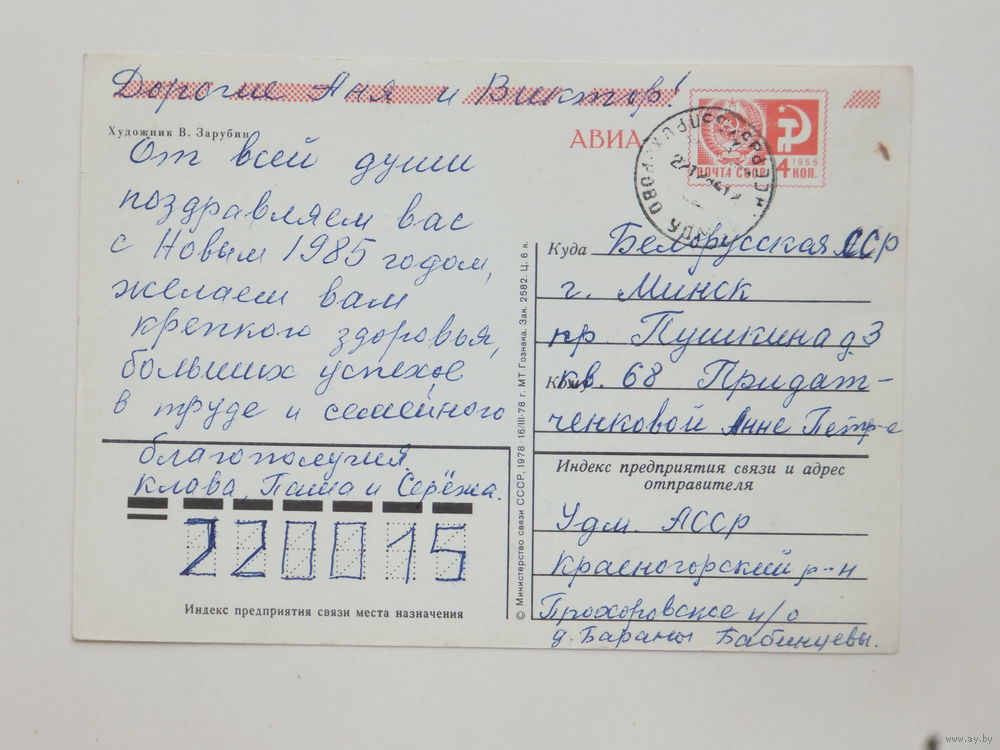 Дорогие Аня и Виктор!
Художник В. Зарубин
АВИА
ПОЧТА СССР
1966
4 КОП.
От всей души
поздравляем вас
с Новым 1985 годом,
желаем вам
крепкого здоровья,
больших успехов
в труде и семейного
благополучия
Клава, Паша и Серёжа.
220015
Индекс предприятия связи места назначения
© Министерство связи СССР, 1978 16/III-78 г. МТ Гознака. Зак. 2582. Ц. 6 к.
Куда Белорусская ССР
г. Минск
пр Пушкина д. 3
Кому кв. 68 Придат-
ченковой Анне Петр-е
Индекс предприятия связи и адрес
отправителя
Удм. АССР
Красногорский р-н
Прохоровское п/о
д. Бараны Бабинцевы.
www.ay.by